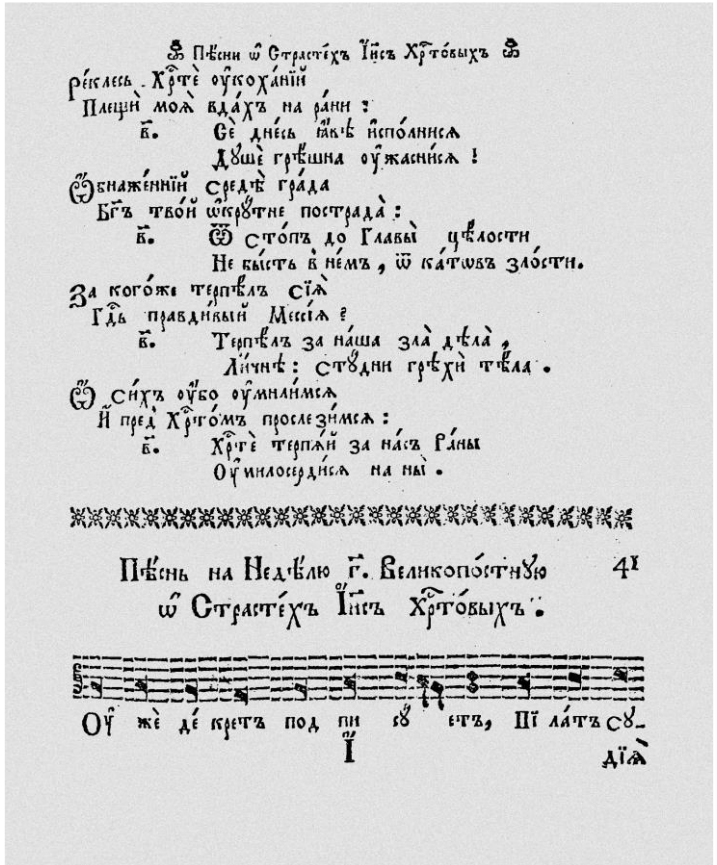 Пѣ́сни ѡ҆ Страсте́хъ І҆и҃съ Хрⷭ҇то́выхъ
Ре́клесь Хрⷭ҇тѐ ᲂу҆коха́нїй
Плещѝ моѧ̀ вда́хъ на ра́ни :
в҃. Сѐ дне́сь ꙗ҆́вѣ и҆спо́лнисѧ
Дꙋшѐ грѣ́шна ᲂу҆жасни́сѧ !
Ѡ҆бнаже́ннїй средѣ̀ гра́да
Бг҃ъ тво́й ѡ҆крꙋ́тне пострада̀ :
в҃. Ѿ сто́пъ до Главы̀ цѣ́лости
Не бы́сть в не́мъ , ѿ ка́товъ зло́сти.
За кого́же терпѣ́лъ сїѧ̀
Гдⷭ҇ь правди́вый Мессі́ѧ ?
в҃. Терпѣ́лъ за на́ша зла̀ дѣла̀ ,
Ли́чнѣ : стꙋ́дни грѣхѝ тѣ́ла .
Ѡ҆ си́хъ ᲂу҆́бо ᲂу҆мили́мсѧ
И҆ пред Хрⷭ҇то́мъ прослези́мсѧ :
в҃. Хрⷭ҇тѐ терпѧ́й за на́съ Ра́ны
Оу҆милосерди́сѧ на ны̀ .
Пѣ́снь на Недѣ́лю г҃. Великопо́стнꙋю 41
ѡ҆ Страсте́хъ І҆и҃съ Хрⷭ҇то́выхъ .
Оу҆ жѐ де́ кретъ под пи сꙋ́ етъ, Пї ла́тъ сꙋ-
І҆ дїѧ̀